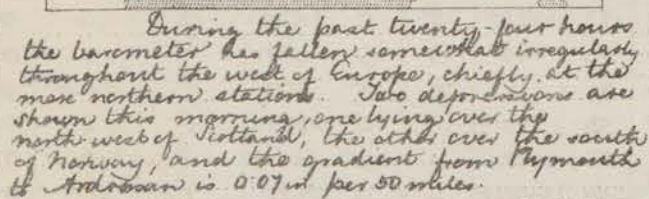 During the past twenty-four hours
the barometer has fallen somewhat irregularly
throughout the west of Europe, chiefly at the
more northern stations. Two depressions are
shown this morning, one lying over the
north-west of Scotland, the other over the south
of Norway, and the gradient from Plymouth
to Ardrossan is 0.07 in per 50 miles.